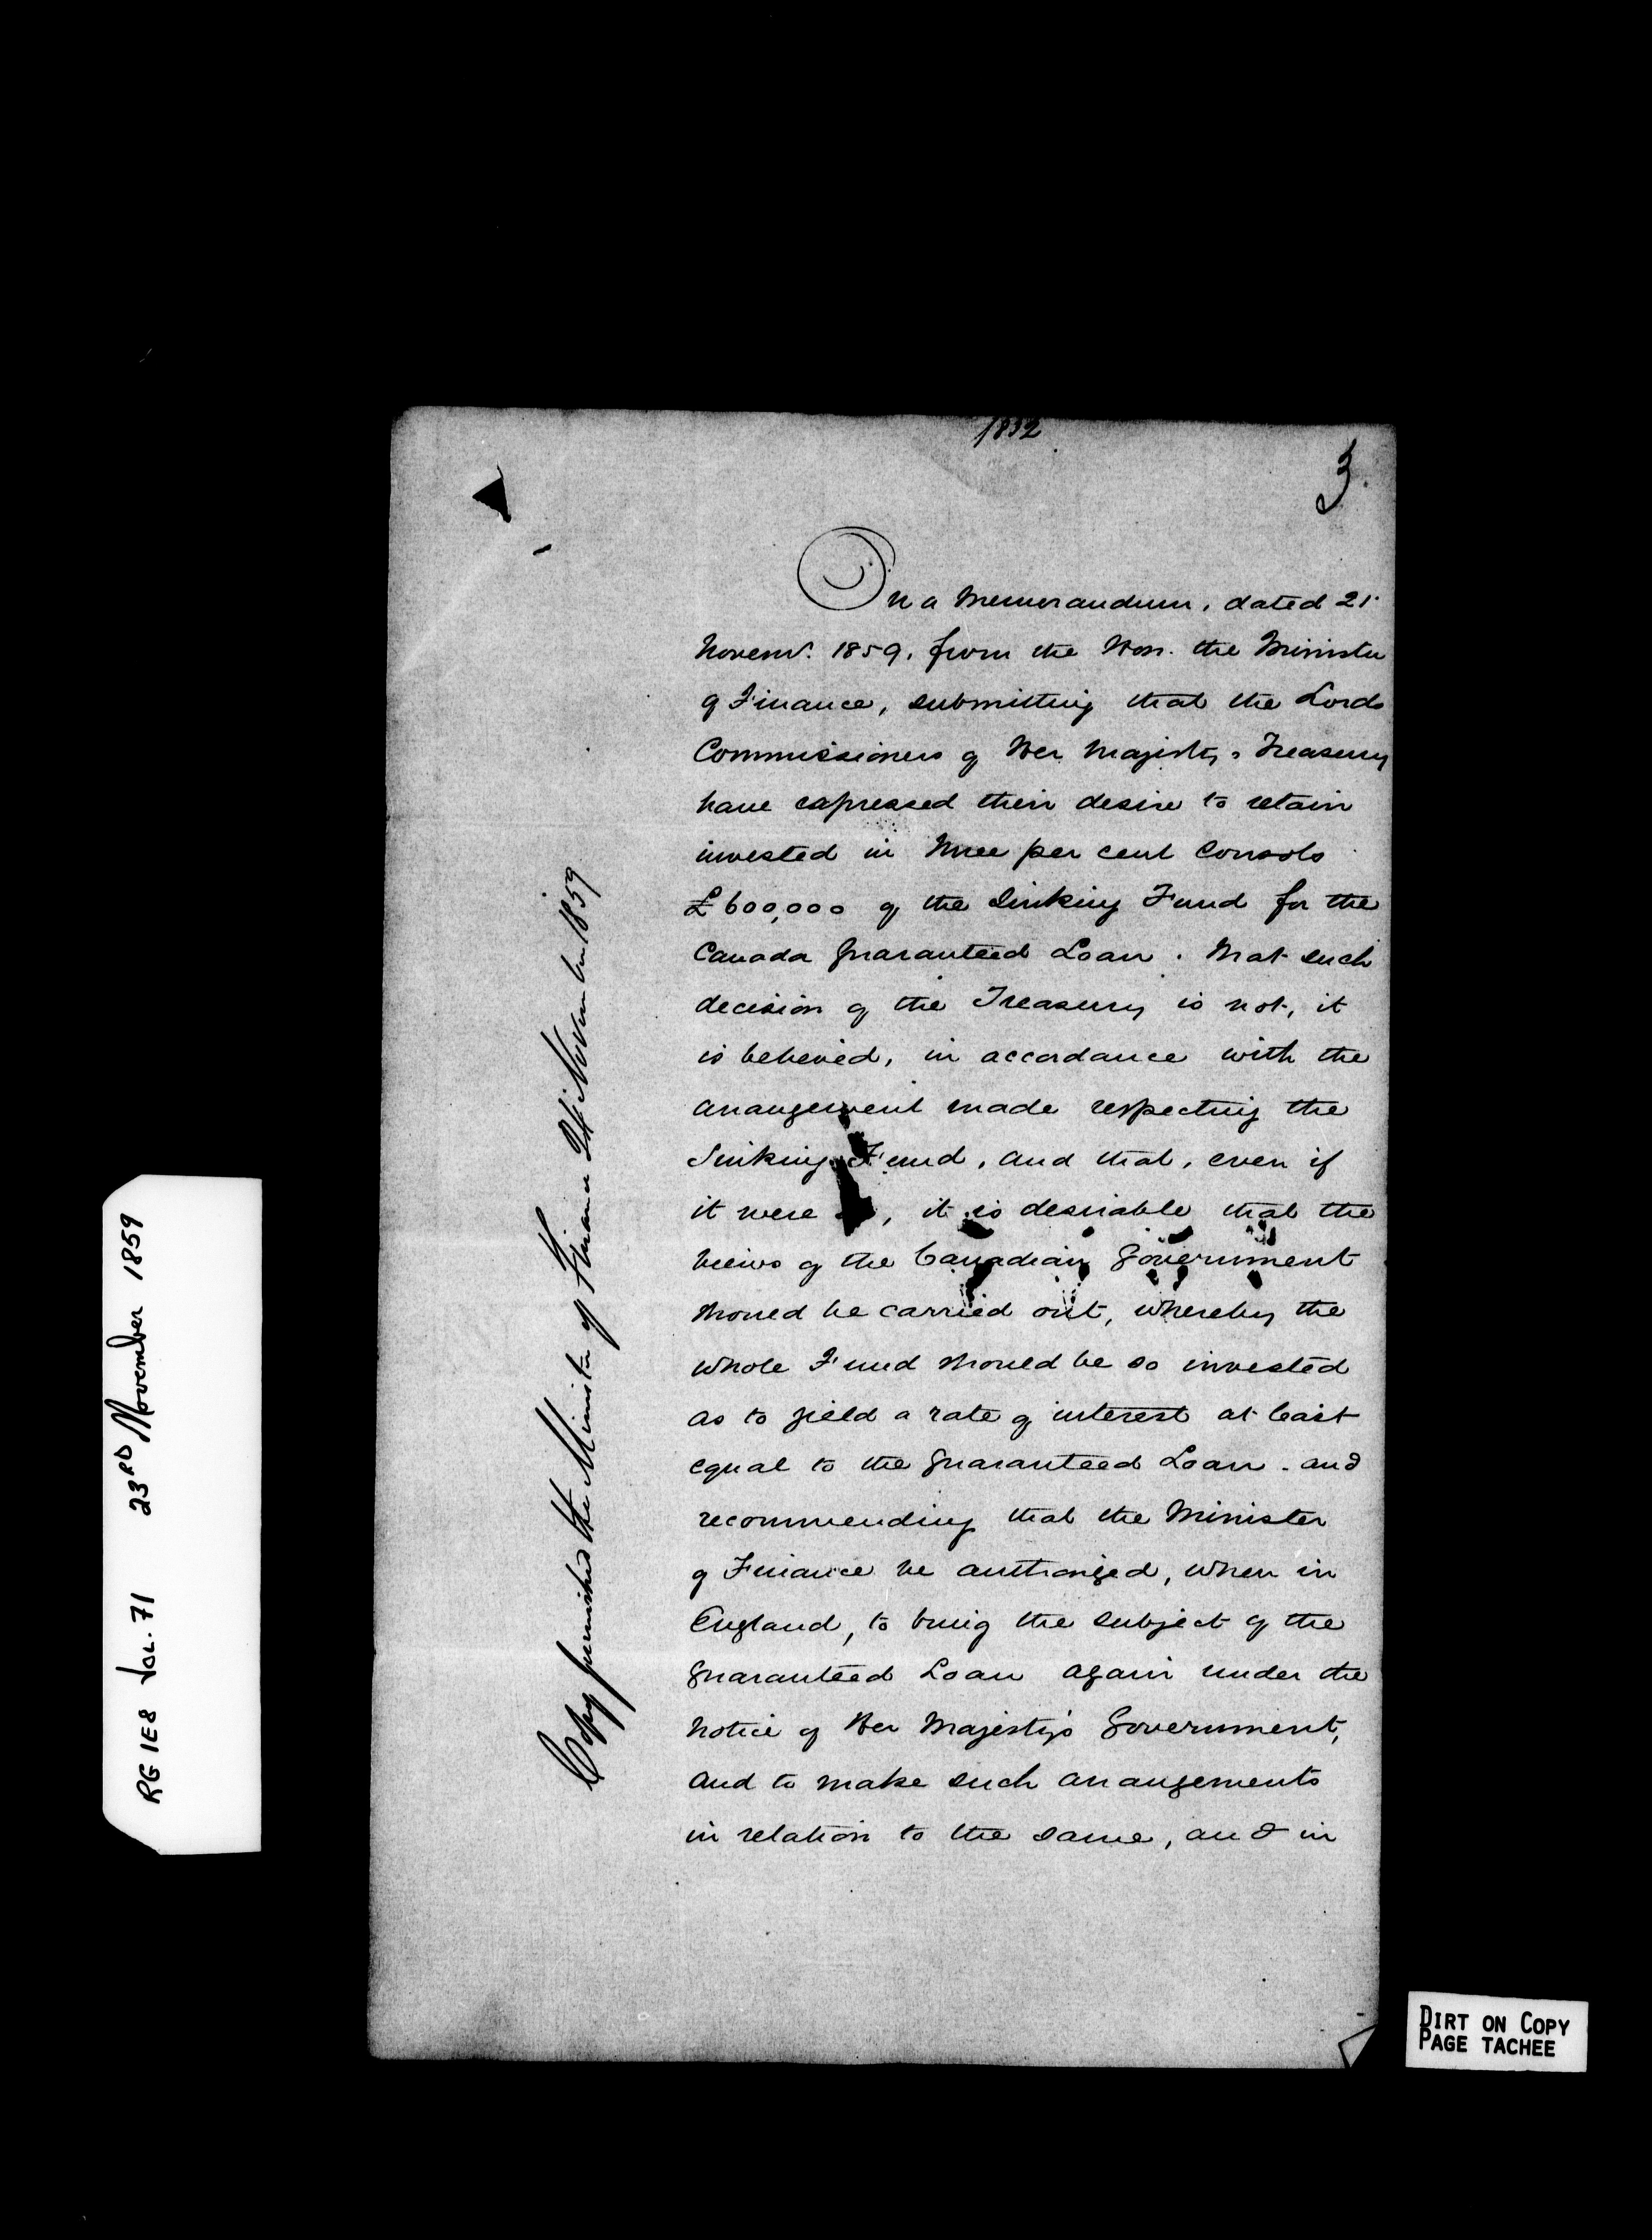 1832
3.
On a Memorandum, dated 21st
Novemr. 1859, from the Hon. the Minister
of Finance, submitting that the Lords
Commissioners of Her Majesty's Treasury
have expressed their desire to retain
invested in Three per cent Consols
£600,000 of the Sinking Fund for the
Canada Guaranteed Loan. That such
decision of the Treasury is not, it
is believed, in accordance with the
arrangement made respecting the
Sinking Fund, and that, even if
it were , it is desirable that the
views of the Canadian Government
should be carried out, whereby the
whole Fund should be so invested
as to yield a rate of interest at least
equal to the Guaranteed Loan - and
recommending that the Minister
of Finance be authorized, when in
England, to bring the subject of the
Guaranteed Loan again under the
notice of Her Majesty's Government,
and to make such arrangements
in relation to the same, and in
Copy furnished the Minister of Finance November 1859
RG 1E8 Vol. 71 23RD November 1859
DIRT ON COPY
PAGE TACHEE